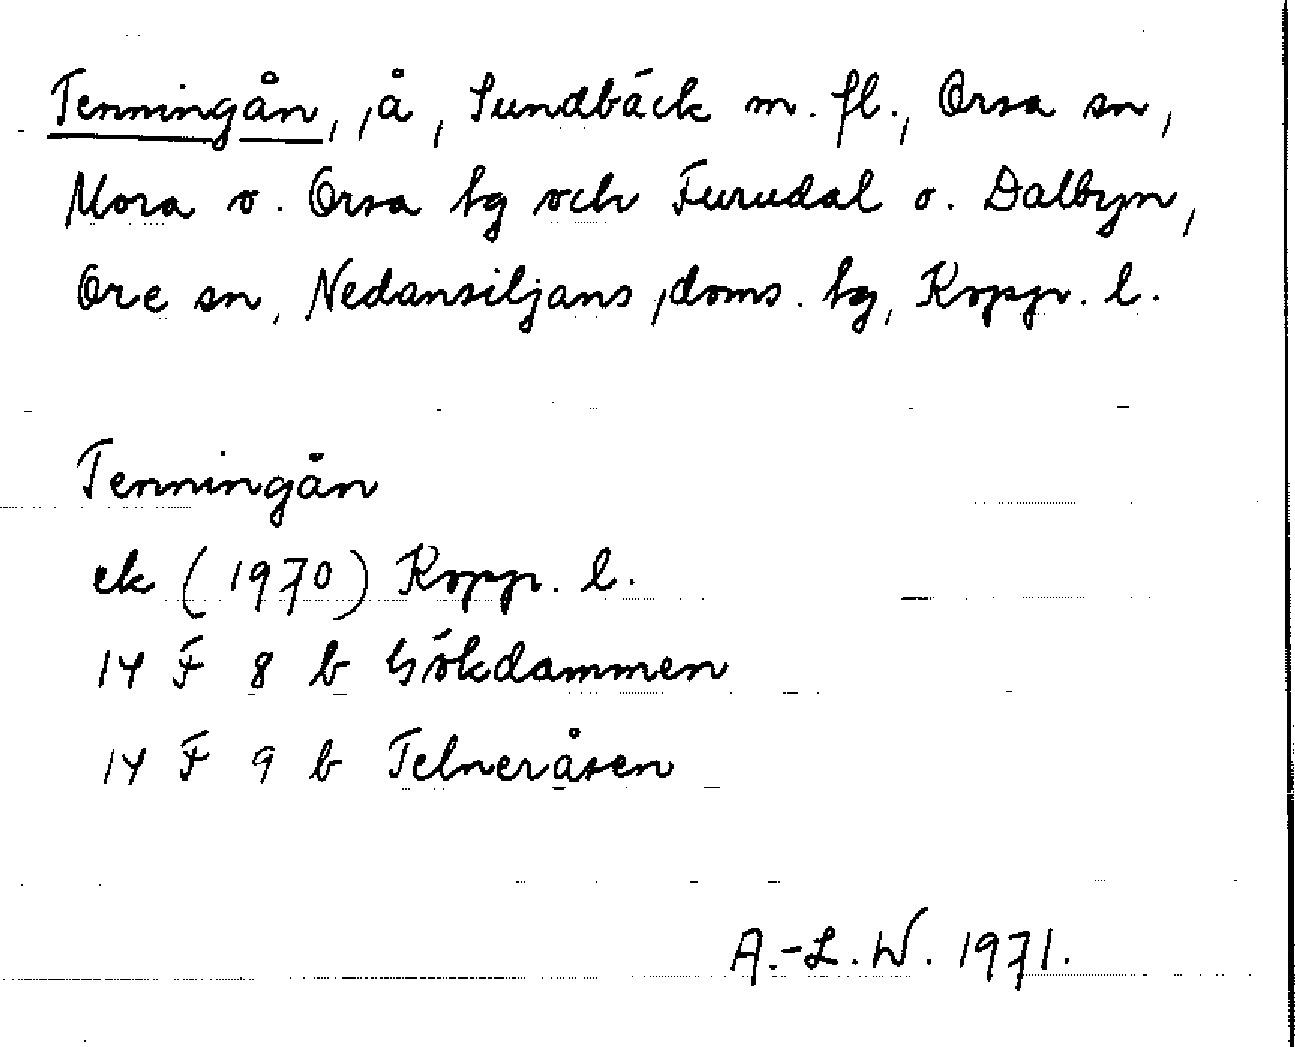 Tenningån, å, Sundbäck m. fl., Orsa sn,
Mora o. Orsa tg och Furudal o. Dalbyn,
Ore sn, Nedansiljans doms. tg, Kopp. l.
Tenningån
ek (1970) Kopp. l.
14 F 8 b Gökdammen
14 F 9 b Telneråsen
A.-L. W. 1971.